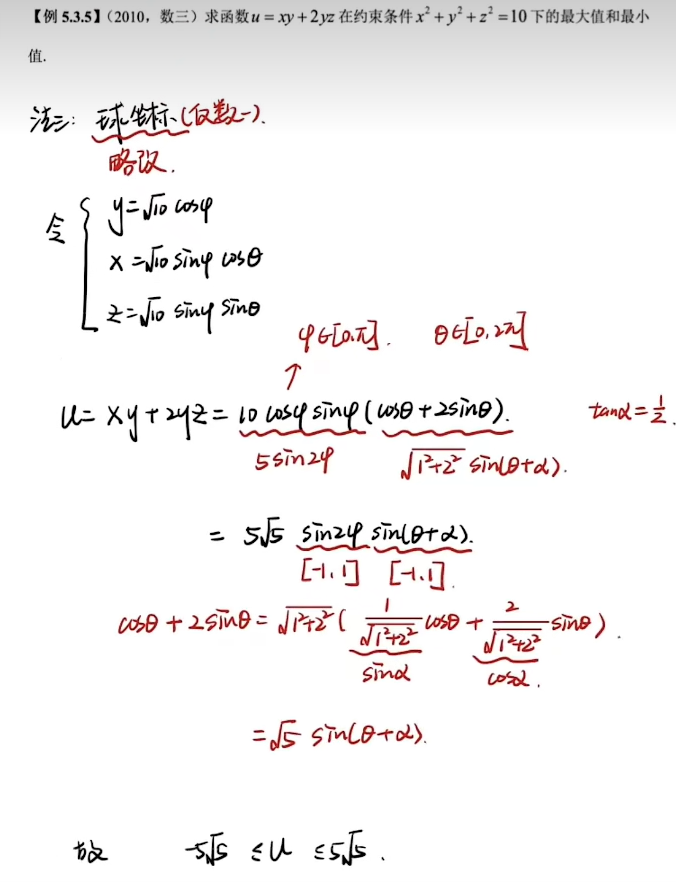 【例 5.3.5】(2010，数三) 求函数 u = xy + 2yz 在约束条件 x² + y² + z² = 10 下的最大值和最小
值.
法三: 球坐标 (仅数一).
略改.
令 { y = √10 cosφ
x = √10 sinφ cosθ
z = √10 sinφ sinθ
φ∈[0,π]. θ∈[0,2π]
↑
u = xy + 2yz = 10 cosφ sinφ (cosθ + 2sinθ). tanα = 1/2.
5sin2φ √(1²+2²) sin(θ+α).
= 5√5 sin2φ sin(θ+α).
[-1,1] [-1,1].
cosθ + 2sinθ = √(1²+2²) ( 1/√(1²+2²) cosθ + 2/√(1²+2²) sinθ ).
sinα cosα.
= √5 sin(θ+α).
故 -5√5 ≤ u ≤ 5√5.